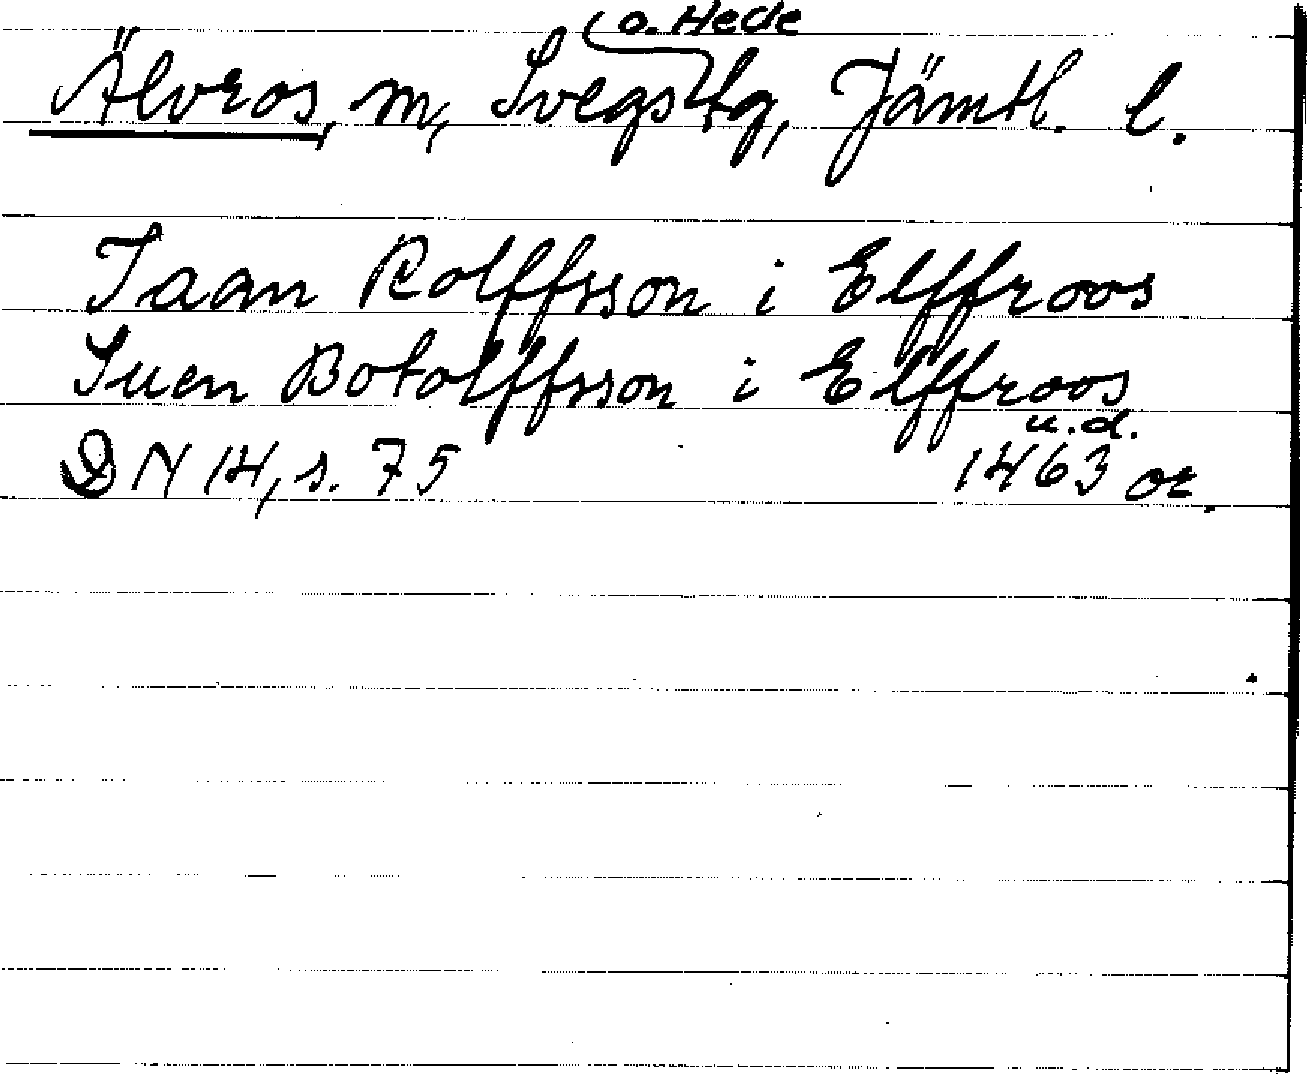 o. Hede
Älvros, m, Svegs tg, Jämtl. l.
Jaan Rolffsson i Elffroos
Suen Botolffsson i Elffroos
u.d.
DN 14, s. 75 1463 or.